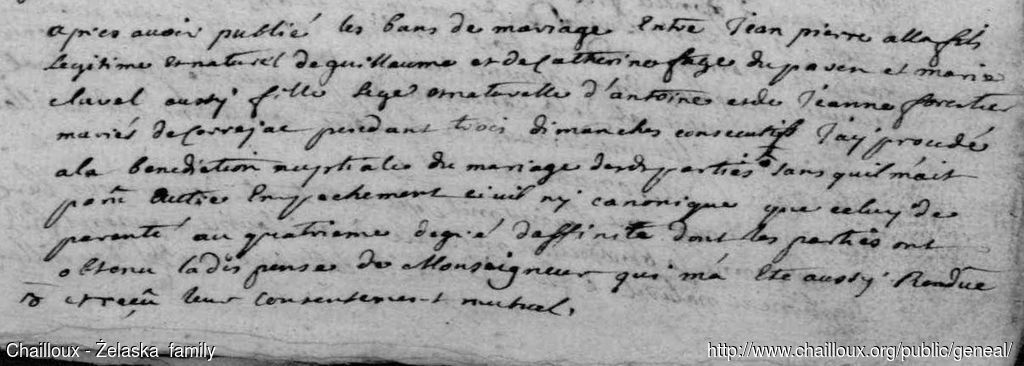 apres avoir publié les bans de mariage Entre Jean pierre alla fils
Legitime et naturel de guillaume et de Catherine fage du paven et marie
clavel aussy fille Lege et naturelle d'antoine et de Jeanne forestier
mariés de Corrajac pendant trois dimanches consecutifs J'ay proudé
a la benediction nuptiale du mariage des parties sans quil m'ait
paru autre Empachement civil ny canonique que celuy de
parenté au quatrieme degré daffinité dont les parties ont
obtenu la dispense de Monseigneur qui m'a Eté aussy Rendüe
et reçu leur Consentement mutuel.
Chailloux - Żelaska family
http://www.chailloux.org/public/geneal/